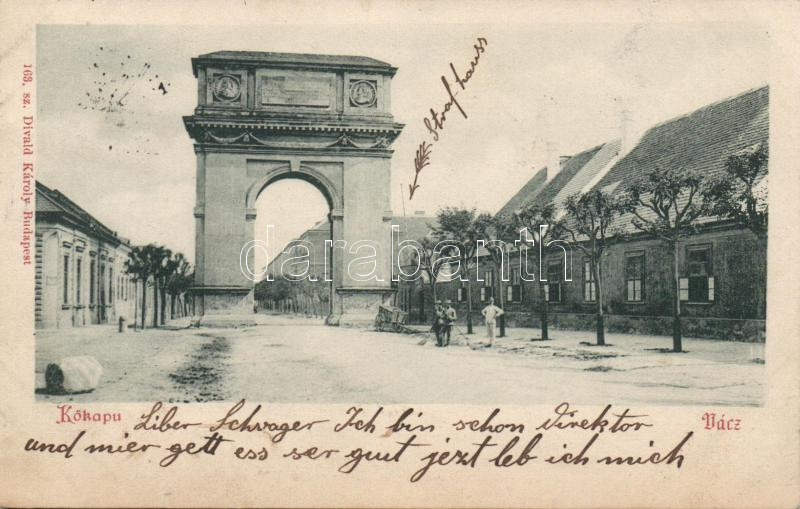 163. sz. Divald Károly Budapest
Strafhauss
darabanth.com
Kőkapu
Vácz
Liber Schwager Ich bin schon Direktor
and mier gett ess ser gut jezt leb ich mich